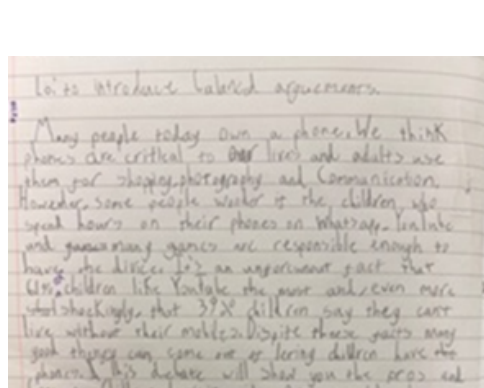 Lo: to introduce balanced arguements.
Many people today own a phone. We think
phones are critical to our lives and adults use
them for shopping, photography and Communication.
However, some people wonder if the children who
spend hours on their phones on Whatsapp, YouTube
and many games are responsible enough to
have the divice. It's an unforunate fact that
61% children like YouTube the most and, even more
shockingly, that 39% children say they can't
live without their mobiles. Dispite these facts many
good things can come out of children have the
phones. This debate will show you the pros and